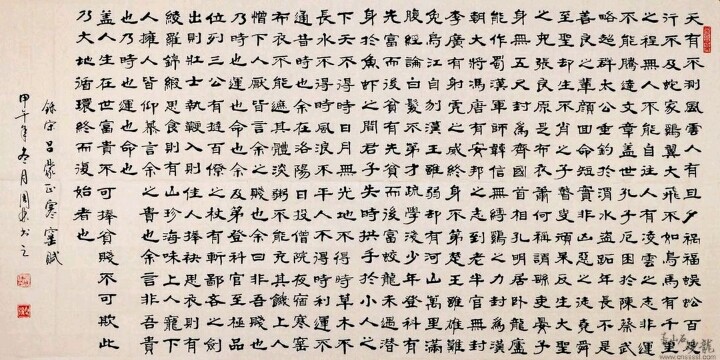 天有不測風雲人有旦夕禍福蜈蚣百足
行不及蛇家鷄翼大飛不如鳥馬有千里
之程無人不能自往人有凌雲之志非運
不能騰達文章蓋世孔子厄困於陳蔡武
略超群太公垂釣於渭水盜跖年長不是
善良之輩顏回命短實非凶惡之徒堯舜
至聖却生不肖之子瞽叟頑呆反生大聖
之兒張良原是布衣蕭何稱謂縣吏晏子
身無五尺封爲齊國首相孔明居卧龍廬
能作蜀漢軍師韓信無縛鷄之力封爲漢
朝大將馮唐有安邦之志到老半官無封
李廣有射虎之威終身不第楚王雖雄難
免烏江自刎漢王雖弱却有河山萬里滿
腹經綸白髮不第才疏學淺少年登科有
先富而後貧有先貧而後富蛟龍未遇潛
身於魚蝦之間君子失時拱手於小人之
下天不得時日月無光地不得時草木不
長水不得時風浪不平人不得時利運不
通昔時余在洛陽日投僧院夜宿寒窑
布衣不能遮其體淡粥不能充其饑上人
憎下人厭皆言余之賤也余曰非吾賤也
乃時也運也命也余及第登科官至極品
位列三公有撻百僚之杖有斬鄙吝之劍
出則壯士執鞭入則佳人捧袂思衣則有
綾羅錦緞思食則有山珍海味上人寵下
人擁人皆仰慕言余之貴也余言非吾貴
也乃時也運也命也
蓋人生在世富貴不可捧貧賤不可欺此
乃天地循環終而復始者也
錄宋呂蒙正寒窑賦
甲午年冬月周書之